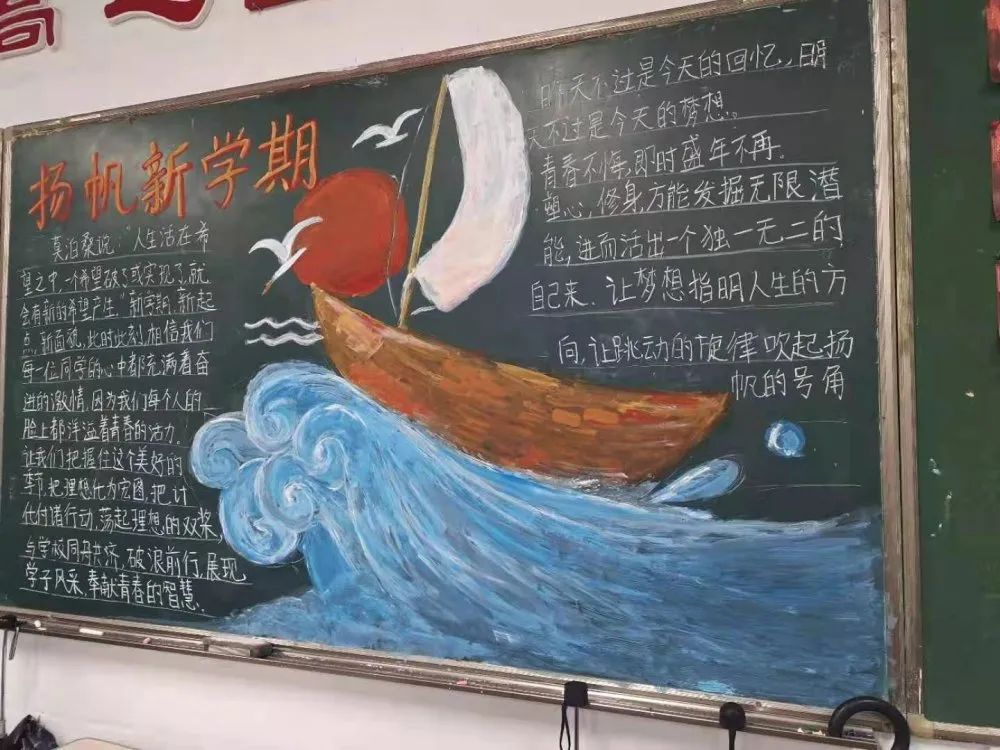 高
扬帆新学期
莫泊桑说："人生活在希
望之中,一个希望破了或实现了,就
会有新的希望产生"新学期,新起
点,新面貌,此时此刻,相信我们
每一位同学的心中都充满着奋
进的激情,因为我们每个人的
脸上都洋溢着青春的活力.
让我们把握住这个美好的
季节,把理想化为宏图,把计
化付诸行动,荡起理想的双桨,
与学校同舟共济,破浪前行,展现
学子风采,奉献青春的智慧.
昨天不过是今天的回忆,明
天不过是今天的梦想。
青春不悔,即时盛年不再.
塑心,修身,方能发掘无限潜
能,进而活出一个独一无二的
自己来.让梦想指明人生的方
向,让跳动的旋律吹起扬
帆的号角